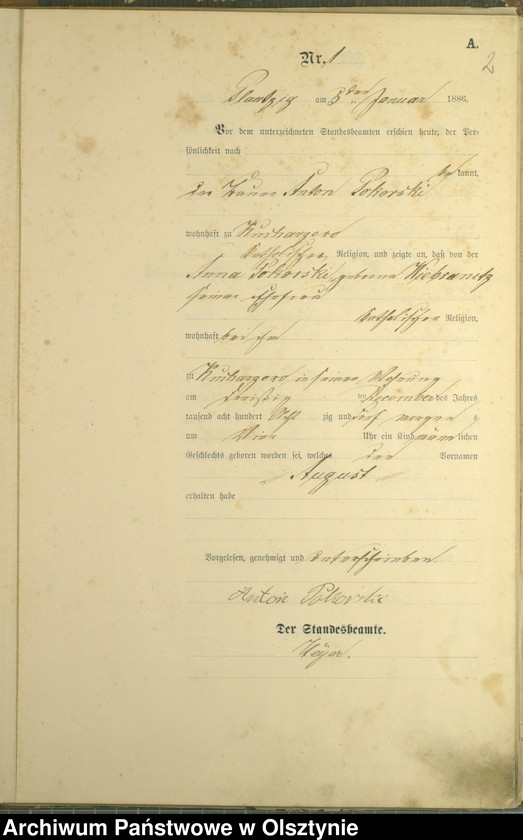 A.
2
Nr. 1
Plautzig am 3ten Januar 1886.
Vor dem unterzeichneten Standesbeamten erschien heute, der Per-
sönlichkeit nach
bekannt,
der Anton Pokorski
wohnhaft zu Kucharzewo
katholischer Religion, und zeigte an, daß von der
Anna Pokorski, geborene
seiner Ehefrau
katholischer Religion,
wohnhaft bei ihm
zu Kucharzewo in seiner Wohnung
am dreißig ten Dezember des Jahres
tausend acht hundert Acht zig und fünf morgens
um Vier Uhr ein Kind männlichen
Geschlechts geboren worden sei, welches den Vornamen
August
erhalten habe
Vorgelesen, genehmigt und unterschrieben
Anton Pokorski
Der Standesbeamte.
Archiwum Państwowe w Olsztynie